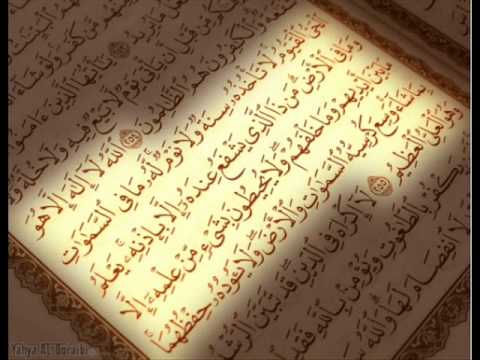 مَا يُرِيدُ ۝ يَٰٓأَيُّهَا ٱلَّذِينَ ءَامَنُوٓا۟
مِّن قَبْلِ أَن يَأْتِىَ يَوْمٌ لَّا بَيْعٌ فِيهِ وَلَا خُلَّةٌ
وَٱلْكَٰفِرُونَ هُمُ ٱلظَّٰلِمُونَ ۝٢٥٤ ٱللَّهُ لَآ إِلَٰهَ إِلَّا هُوَ
ٱلْحَىُّ ٱلْقَيُّومُ ۚ لَا تَأْخُذُهُۥ سِنَةٌ وَلَا نَوْمٌ ۚ لَّهُۥ مَا فِى ٱلسَّمَٰوَٰتِ
وَمَا فِى ٱلْأَرْضِ ۗ مَن ذَا ٱلَّذِى يَشْفَعُ عِندَهُۥٓ إِلَّا بِإِذْنِهِۦ ۚ يَعْلَمُ
مَا بَيْنَ أَيْدِيهِمْ وَمَا خَلْفَهُمْ ۖ وَلَا يُحِيطُونَ بِشَىْءٍ مِّنْ عِلْمِهِۦٓ إِلَّا
بِمَا شَآءَ ۚ وَسِعَ كُرْسِيُّهُ ٱلسَّمَٰوَٰتِ وَٱلْأَرْضَ ۖ وَلَا يَـُٔودُهُۥ حِفْظُهُمَا ۚ
وَهُوَ ٱلْعَلِىُّ ٱلْعَظِيمُ ۝٢٥٥ لَآ إِكْرَاهَ فِى ٱلدِّينِ ۖ قَد تَّبَيَّنَ ٱلرُّشْدُ
يَكْفُرْ بِٱلطَّٰغُوتِ وَيُؤْمِنۢ بِٱللَّهِ فَقَدِ
لَا ٱنفِصَامَ لَهَا ۗ وَٱللَّهُ